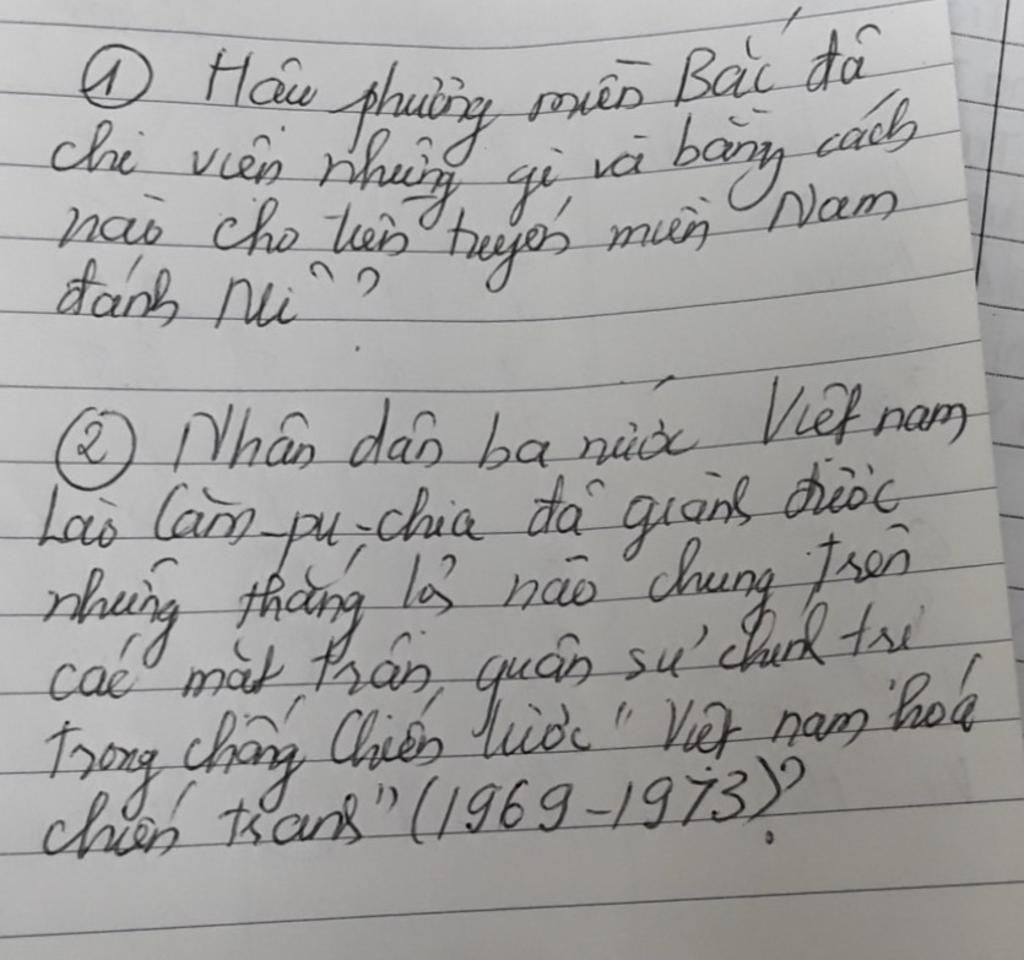 ① Hậu phương miền Bắc đã
chi viện những gì và bằng cách
nào cho tiền tuyến miền Nam
đánh Mĩ ?
② Nhân dân ba nước Việt nam
Lào Căm-pu-chia đã giành được
những thắng lợi nào chung trên
các mặt trận quân sự chính trị
trong chống Chiến lược " Việt nam hoá
chiến tranh" (1969-1973)?